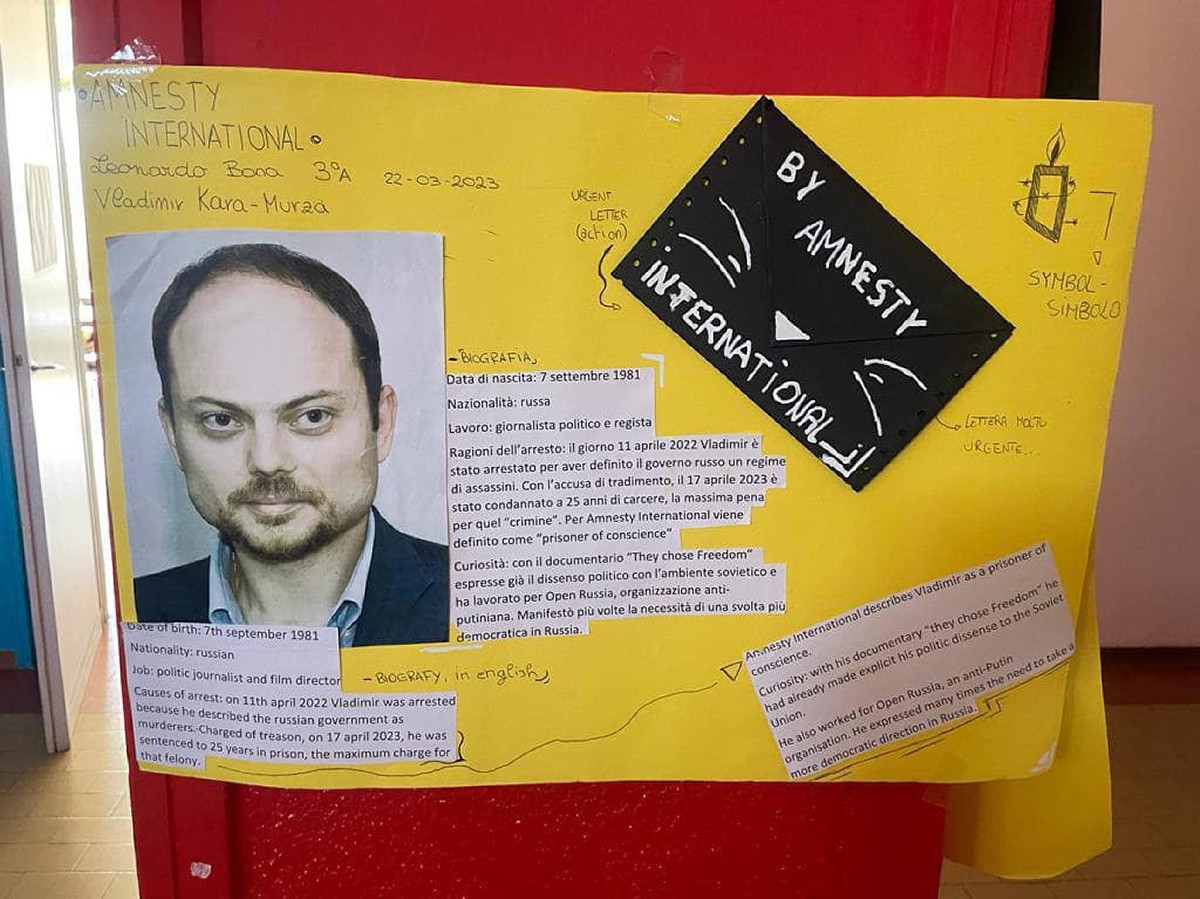 AMNESTY
INTERNATIONAL
Leonardo Bona 3°A 22-03-2023
Vladimir Kara-Murza
URGENT
LETTER
(action)
BY
AMNESTY
INTERNATIONAL
SYMBOL-
SIMBOLO
LETTERA MOLTO
URGENTE...
-BIOGRAFIA
Data di nascita: 7 settembre 1981
Nazionalità: russa
Lavoro: giornalista politico e regista
Ragioni dell'arresto: il giorno 11 aprile 2022 Vladimir è
stato arrestato per aver definito il governo russo un regime
di assassini. Con l'accusa di tradimento, il 17 aprile 2023 è
stato condannato a 25 anni di carcere, la massima pena
per quel "crimine". Per Amnesty International viene
definito come "prisoner of conscience"
Curiosità: con il documentario "They chose Freedom"
espresse già il dissenso politico con l'ambiente sovietico e
ha lavorato per Open Russia, organizzazione anti-
putiniana. Manifestò più volte la necessità di una svolta più
democratica in Russia.
-BIOGRAFY, in english
Date of birth: 7th september 1981
Nationality: russian
Job: politic journalist and film director
Causes of arrest: on 11th april 2022 Vladimir was arrested
because he described the russian government as
murderers. Charged of treason, on 17 april 2023, he was
sentenced to 25 years in prison, the maximum charge for
that felony.
Amnesty International describes Vladimir as a prisoner of
conscience.
Curiosity: with his documentary "they chose Freedom" he
had already made explicit his politic dissense to the Soviet
Union.
He also worked for Open Russia, an anti-Putin
organisation. He expressed many times the need to take a
more democratic direction in Russia.